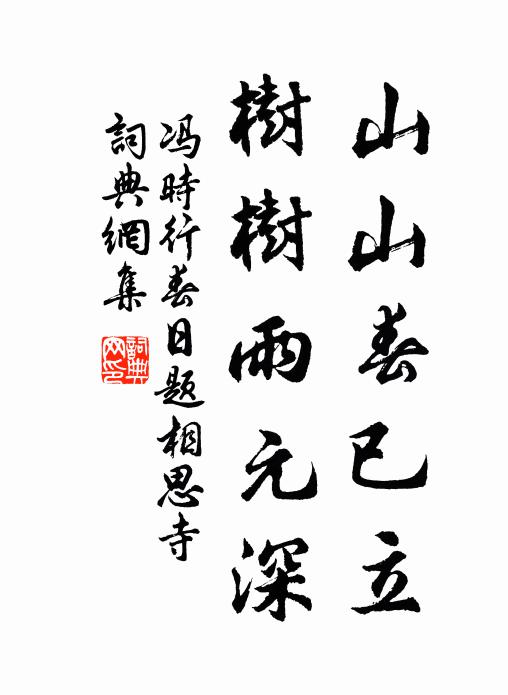 山山春已立
樹樹雨元深
冯時行春日题相思寺
詞典網集
詞典网印